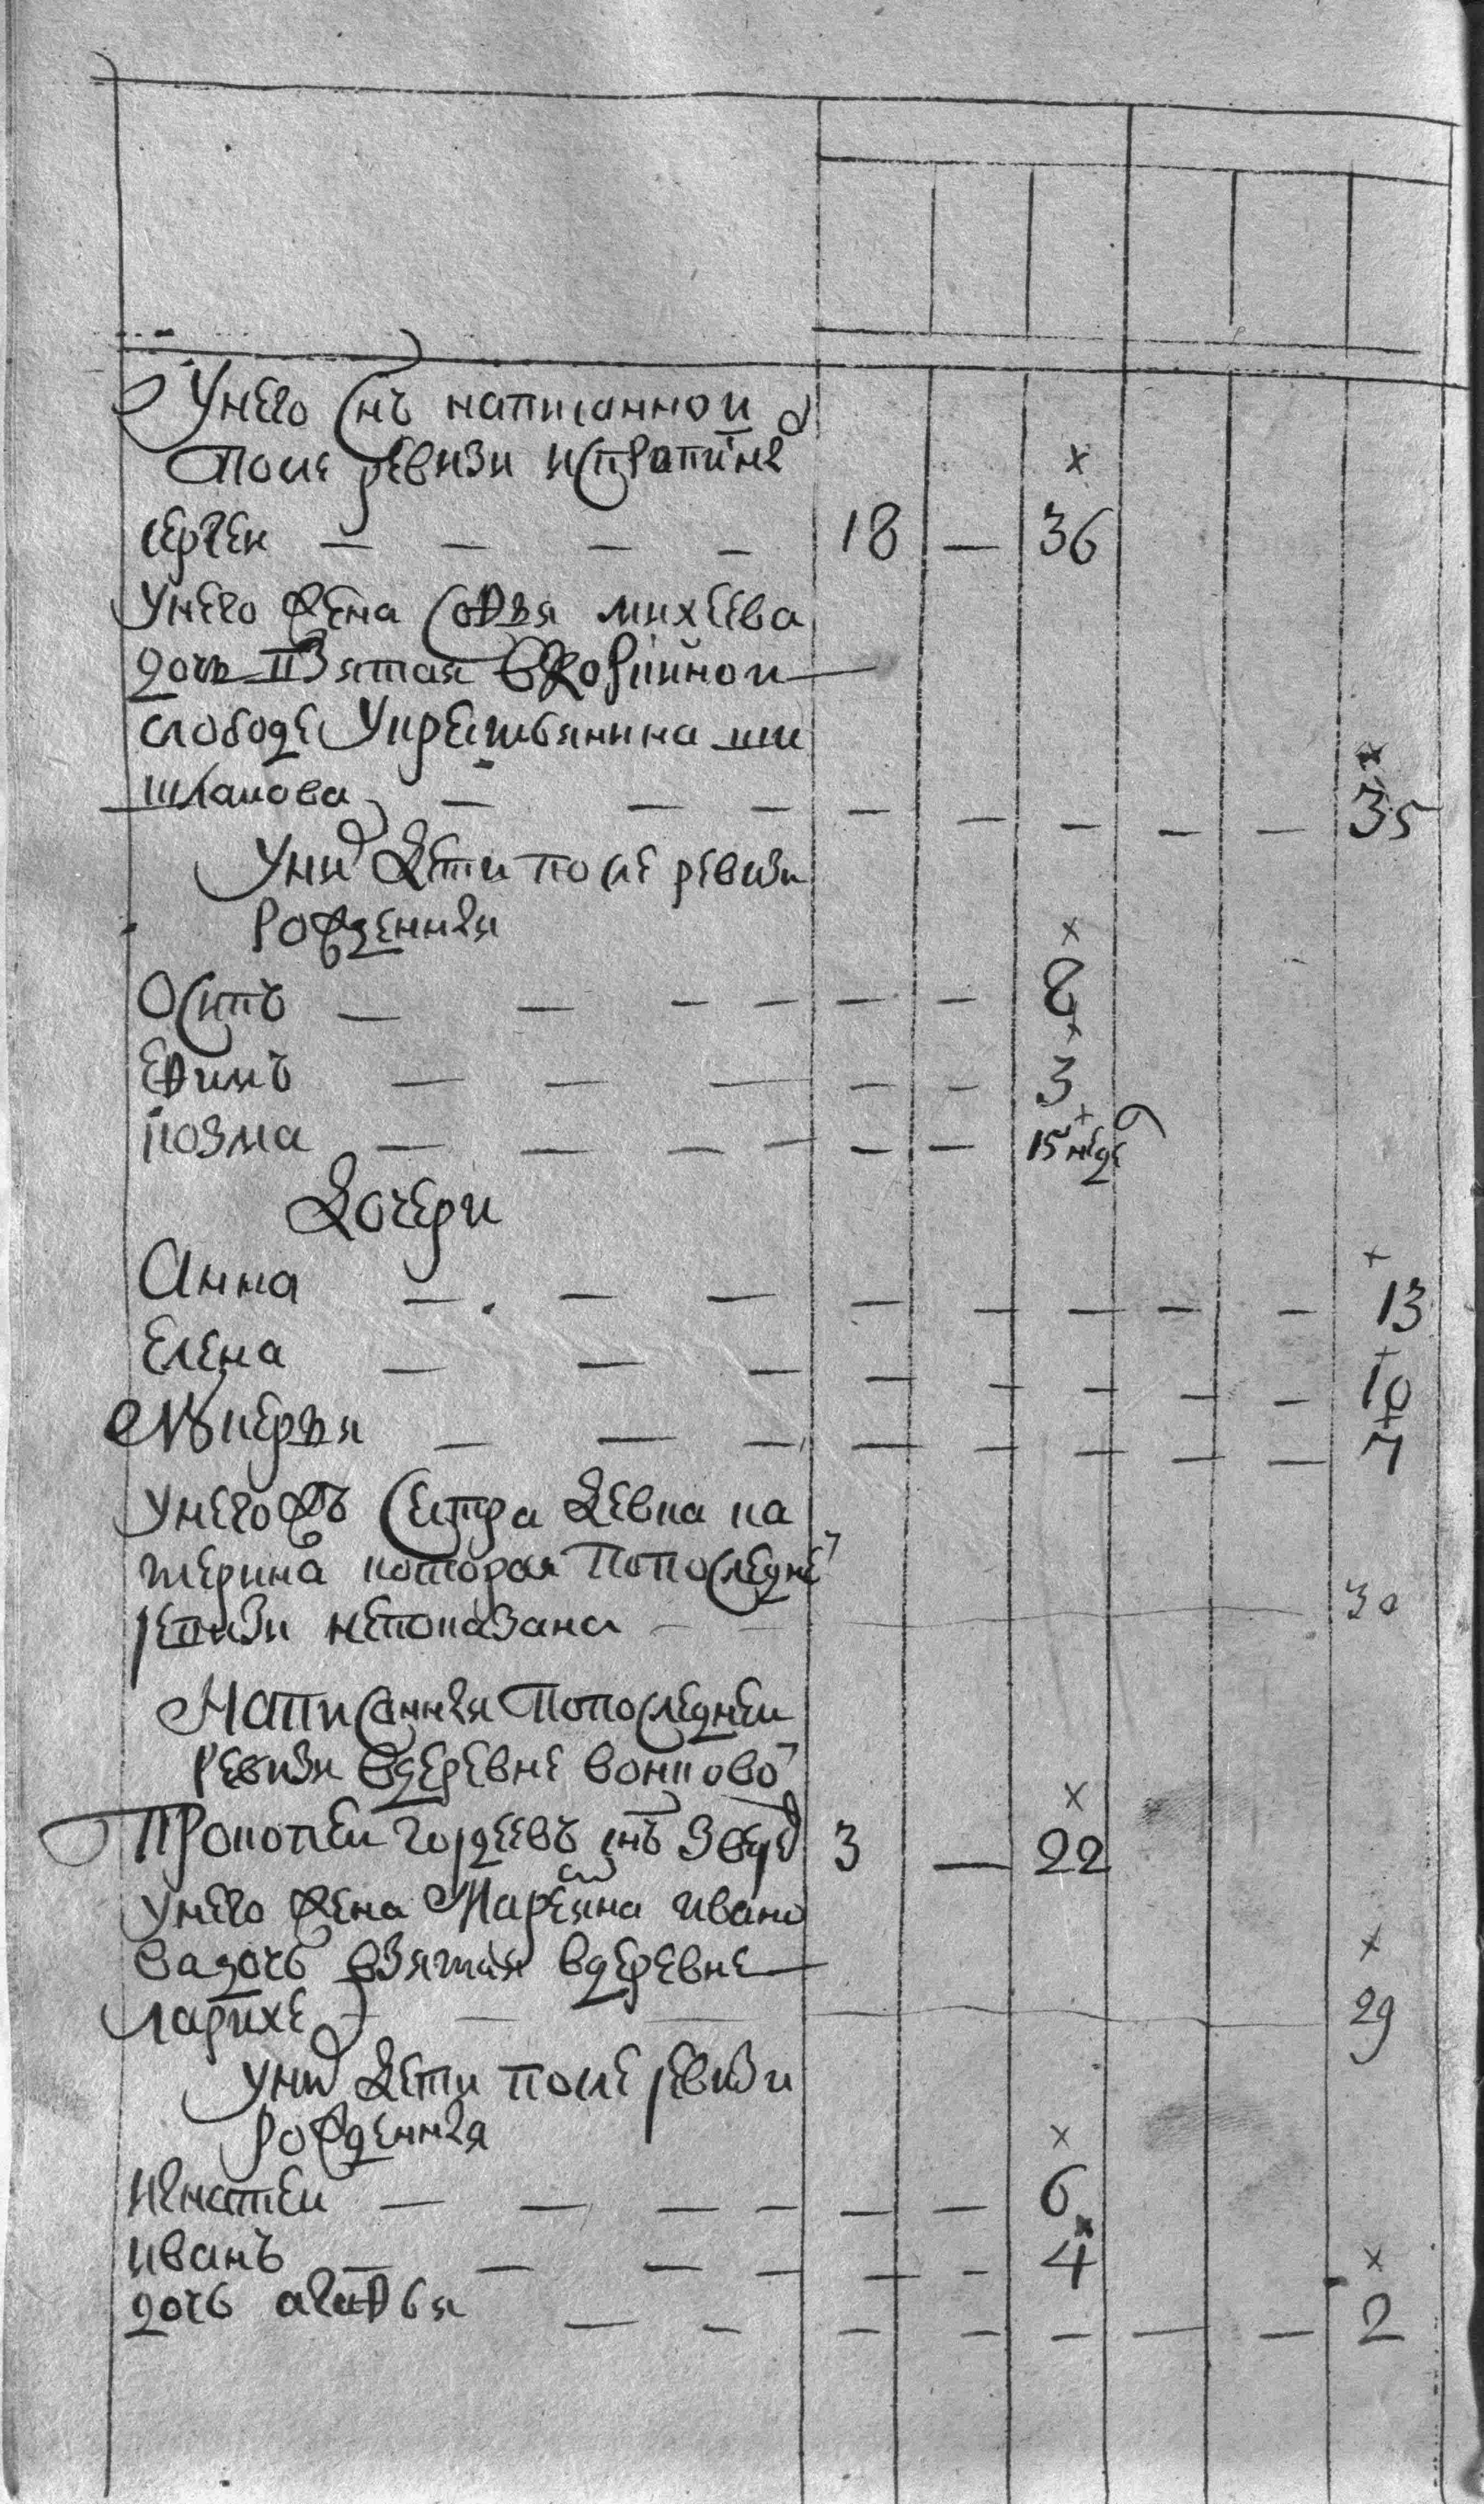 Унего снъ написанной в
после ревизи истратине
сергеи — — — — 18 — 36
Унего жена софья михеева
дочь взятая
слободе Укрестьянина ши
шлакова — — — — — — — — 35
Уних дети после ревизи
рожденныя
Осипъ — — — — — — 8
Ефимъ — — — — — 3
козма — — — — — — 15 неде
Дочери
Анна — — — — — — — — 13
Елена — — — — — — — — 10
Лукерья — — — — — — — — 7
Унегожъ сестра девка ка
терина которая попоследне
ревизи непоказана — — 30
Написанныя попоследнеи
ревизи вдеревне воиково
Прокопеи гордеевъ снъ 3 — 22
Унего жена Марёяна ивано
вадочь взятая вдеревне
ларихе — — — 29
уних дети после ревизи
рожденныя
игнатеи — — — — — — 6
иванъ — — — — — — 4
дочь агафья — — — — — — — 2